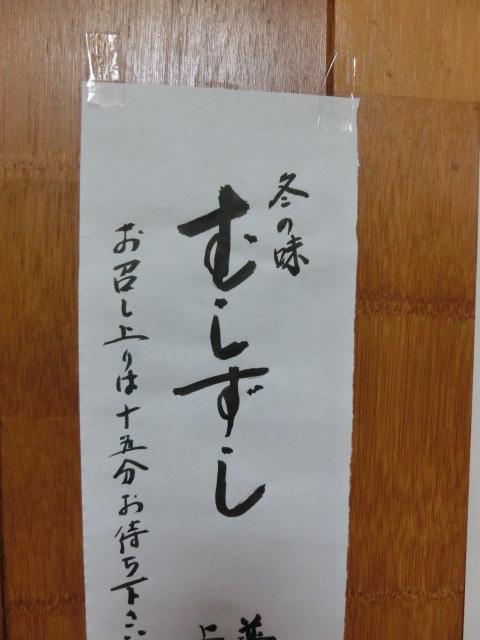 冬の味
むしずし
お召し上りは十五分お待ち下さい